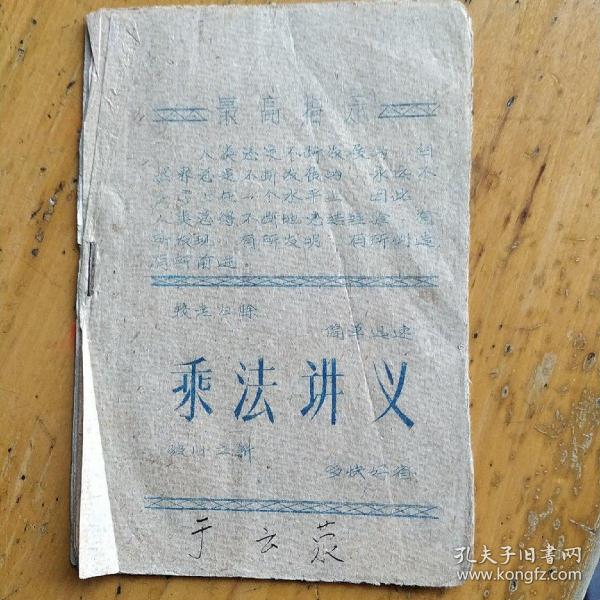 最高指示
人类总是不断发展的 自
然界总是不断发展的 永远不
会停止在一个水平上 因此
人类总得不断地总结经验 有
所发现 有所发明 有所创造
有所前进
简单迅速
乘法讲义
多快好省
于云
孔夫子旧书网
www.kongfz.com